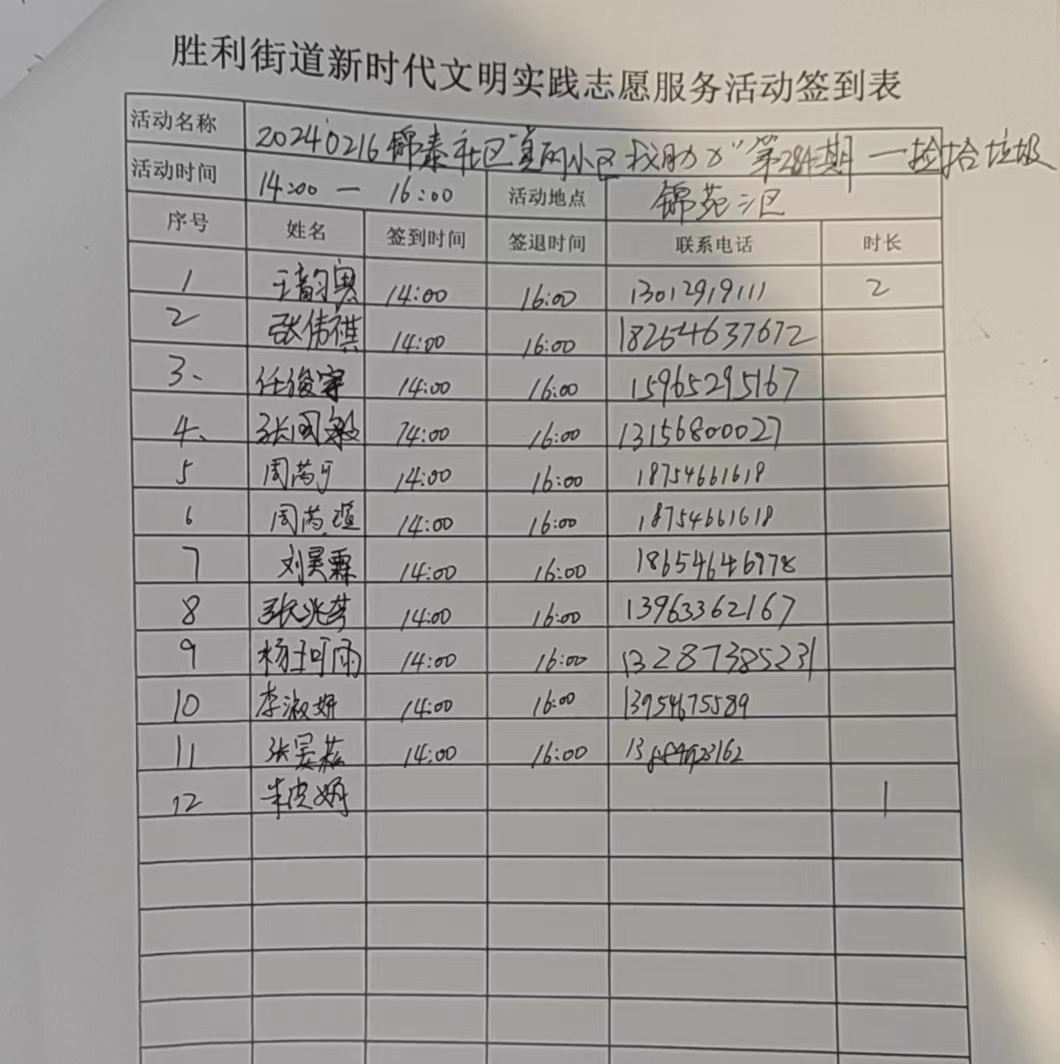 胜利街道新时代文明实践志愿服务活动签到表
活动名称 20240216锦泰社区"美丽小区我助力"第284期一捡拾垃圾
活动时间 14:00 — 16:00 活动地点 锦苑三区
序号 姓名 签到时间 签退时间 联系电话 时长
1 王韵奥 14:00 16:00 13012919111 2
2 张伟祺 14:00 16:00 18254637672
3、 任俊宇 14:00 16:00 15965295167
4、 张国敏 14:00 16:00 13156800027
5 周芮可 14:00 16:00 18754661618
6 周芮瑄 14:00 16:00 18754661618
7 刘昊霖 14:00 16:00 18654646978
8 张兆 14:00 16:00 13963362167
9 杨珂雨 14:00 16:00 13287385231
10 李淑妍 14:00 16:00 13954675589
11 张 14:00 16:00
12 1